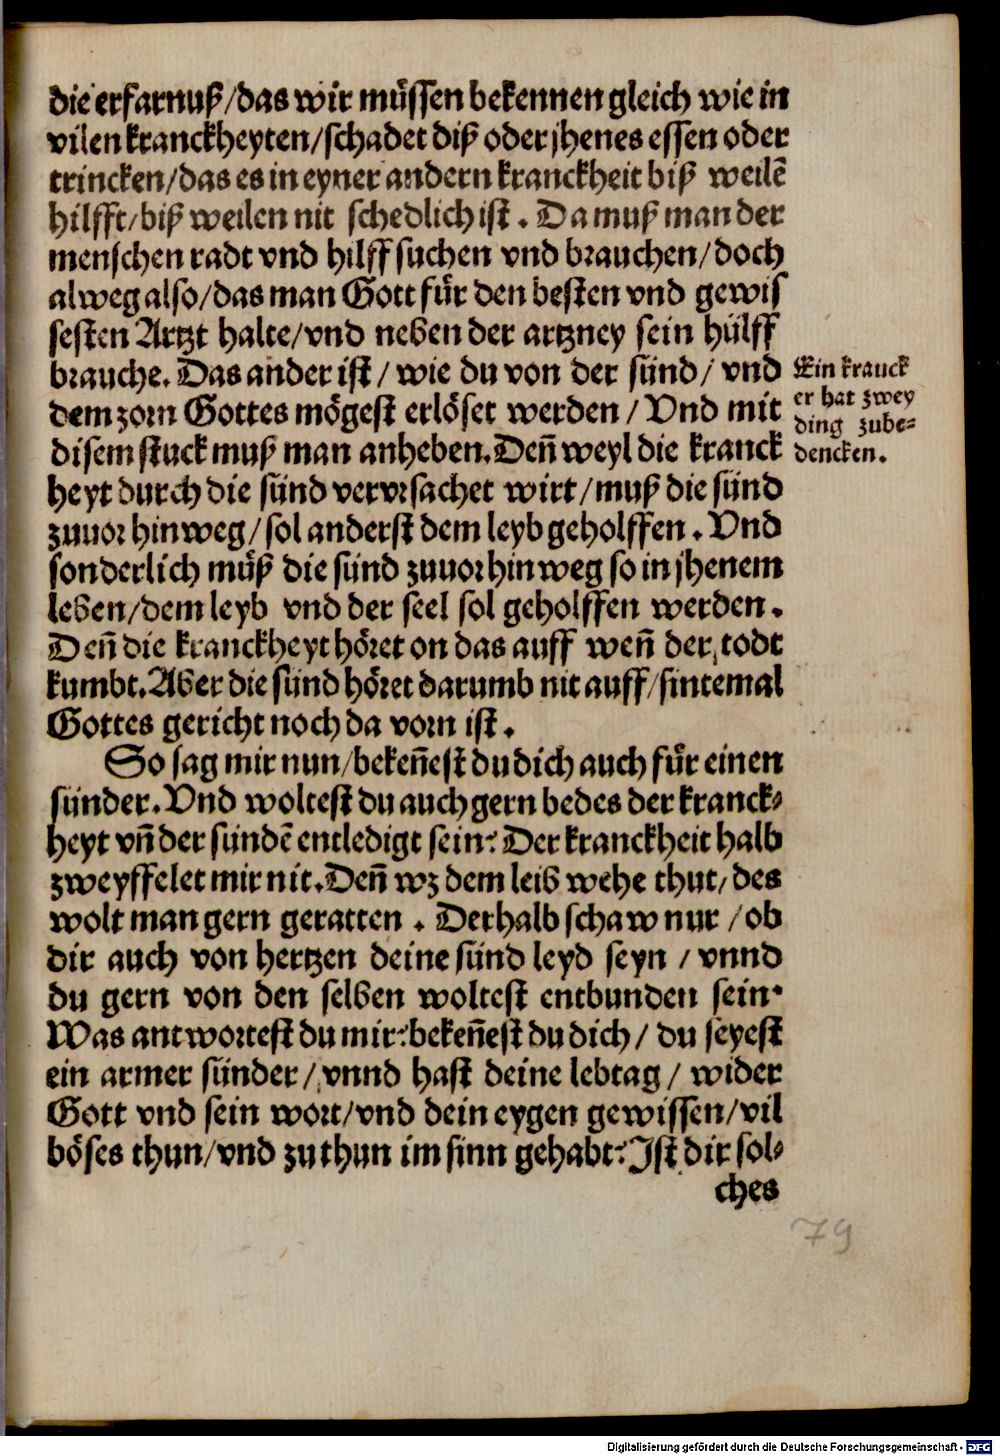 die erfarnuß/das wir müssen bekennen gleich wie in
vilen kranckheyten/schadet diß oder jhenes essen oder
trincken/das es in eyner andern kranckheit biß weilē
hilfft/biß weilen nit schedlich ist. Da muß man der
menschen radt vnd hilff suchen vnd brauchen/doch
alweg also/das man Gott für den besten vnd gewis
sesten Artzt halte/vnd neben der artzney sein hülff
brauche. Das ander ist/wie du von der sünd/vnd
dem zorn Gottes mögest erlöset werden/Vnd mit
disem stuck muß man anheben. Deñ weyl die kranck
heyt durch die sünd vervrsachet wirt/muß die sünd
zuuor hinweg/sol anderst dem leyb geholffen. Vnd
sonderlich müß die sünd zuuor hinweg so in jhenem
leben/dem leyb vnd der seel sol geholffen werden.
Deñ die kranckheyt höret on das auff weñ der todt
kumbt. Aber die sünd höret darumb nit auff/sintemal
Gottes gericht noch da vorn ist.
So sag mir nun/bekeñest du dich auch für einen
sünder. Vnd woltest du auch gern bedes der kranck⸗
heyt vñ der sündē entledigt sein? Der kranckheit halb
zweyffelet mir nit. Deñ wz dem leib wehe thut/des
wolt man gern geratten. Derhalb schaw nur/ob
dir auch von hertzen deine sünd leyd seyn/vnnd
du gern von den selben woltest entbunden sein.
Was antwortest du mir? bekeñest du dich/du seyest
ein armer sünder/vnnd hast deine lebtag/wider
Gott vnd sein wort/vnd dein eygen gewissen/vil
böses thun/vnd zu thun im sinn gehabt? Ist dir sol⸗
ches
Ein kranck
er hat zwey
ding zube⸗
dencken.
79
Digitalisierung gefördert durch die Deutsche Forschungsgemeinschaft - DFG